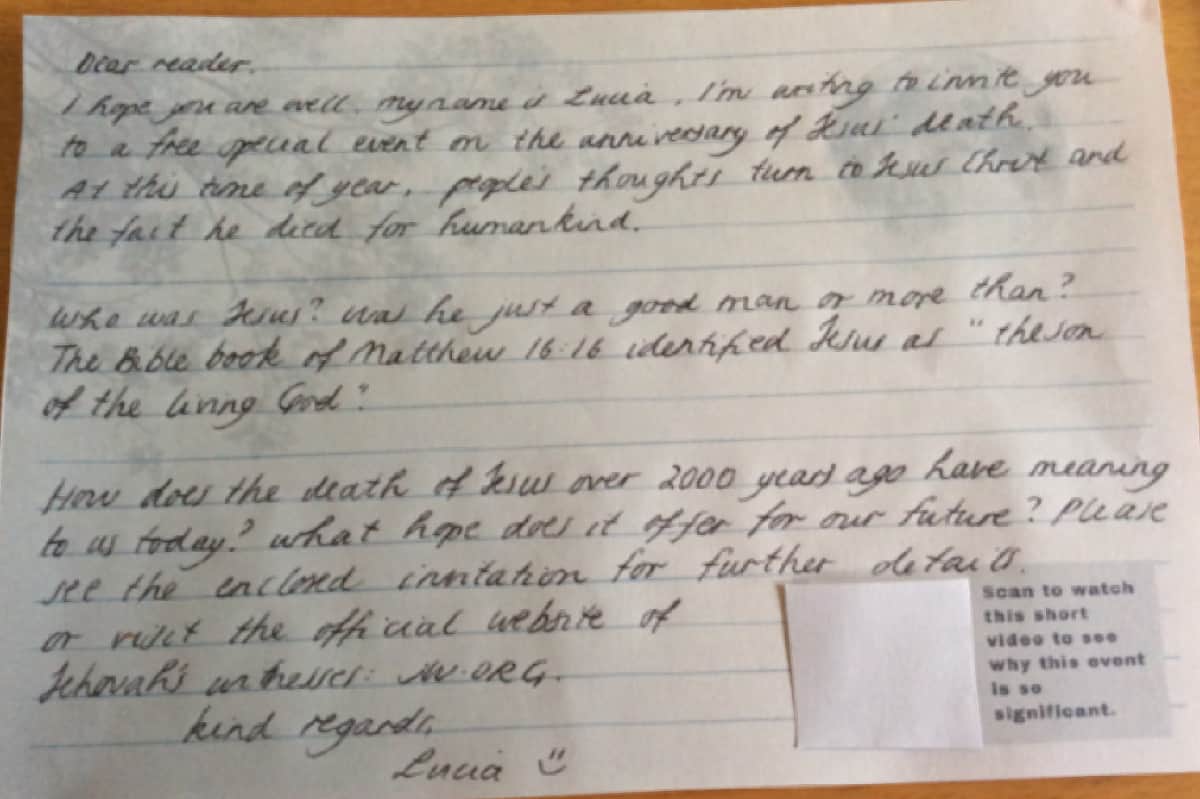 Dear reader.
I hope you are well. my name is Lucia. I'm writing to invite you
to a free special event on the anniversary of Jesus' death.
At this time of year, people's thoughts turn to Jesus Christ and
the fact he died for humankind.
Who was Jesus? was he just a good man or more than?
The Bible book of Matthew 16:16 identified Jesus as "the son
of the living God".
How does the death of Jesus over 2000 years ago have meaning
to us today? what hope does it offer for our future? Please
see the enclosed invitation for further details.
or visit the official website of
Jehovah's witnesses: JW.ORG.
kind regards,
Lucia
Scan to watch
this short
video to see
why this event
is so
significant.